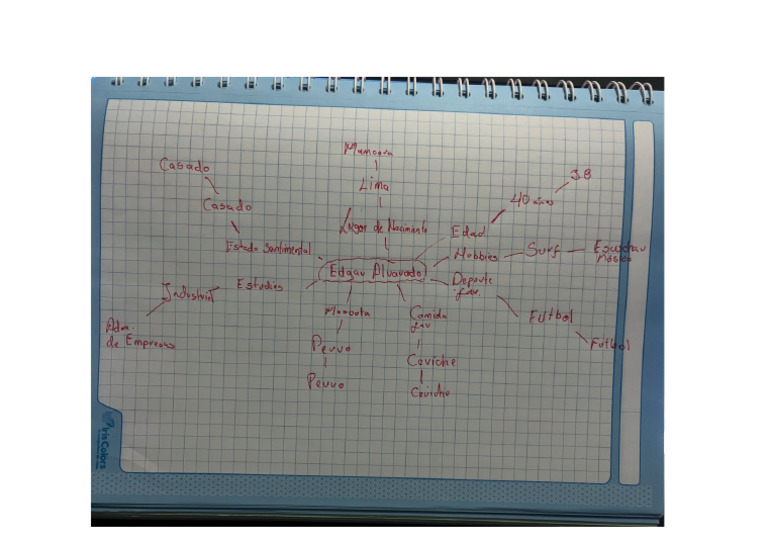 Mamoova
Casado
38
Lima
40 años
Casado
Lugar de Nacimiento
Edad
Estado Santimental
Hobbies
Surf
Escuchar
Música
Edgar Alvarado
Estudios
Deporte
fav.
Industrial
Mascota
Comida
fav
Futbol
Adm.
de Empresas
Perro
Futbol
Ceviche
Perro
Ceviche
IrisColors